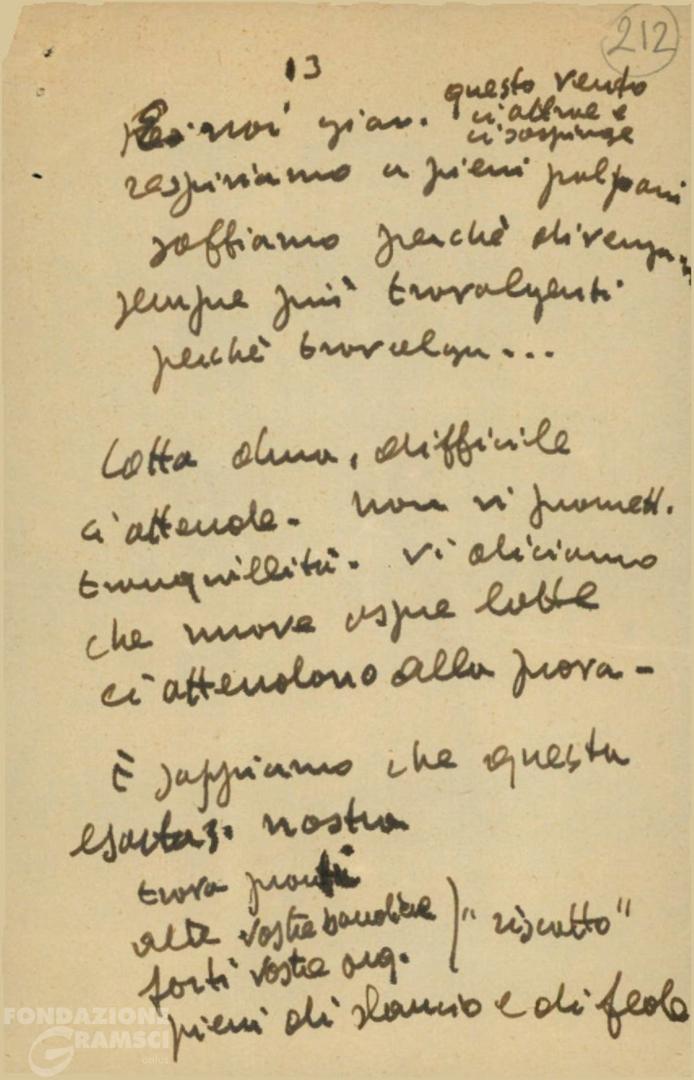 212
13
E noi giov. questo vento
ci attrae e
ci sospinge
respiriamo a pieni polmoni
soffiamo perchè divenga
sempre più travolgenti
perchè travolga...
Lotta dura, difficile
ci attende. Non vi promett.
tranquillità. Vi diciamo
che nuove aspre lotte
ci attendono alla prova -
E sappiamo che questa
esortaz. nostra
trova pronti
alte vostre bandiere
forti vostre org.
"riscatto"
pieni di slancio e di fede
FONDAZIONE
GRAMSCI